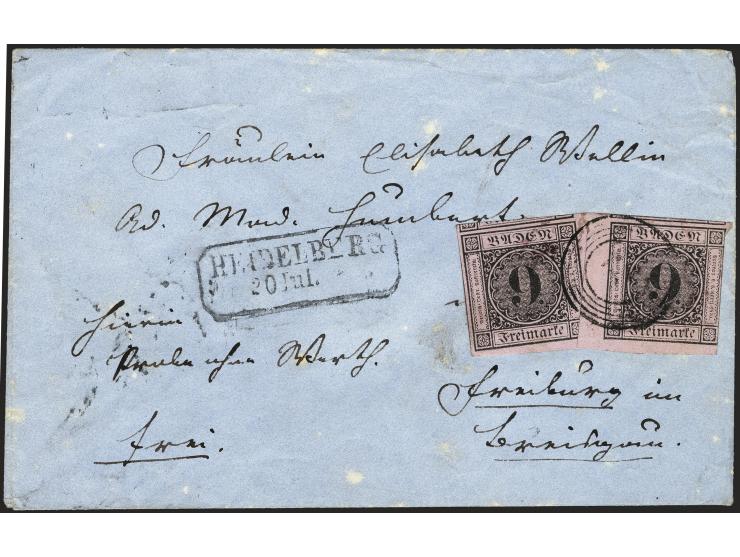 Fräulein Elisabeth Wellin
Ad. Mad. Humbert.
HEIDELBERG
20 Jul.
BADEN
9
Freimarke
BADEN
9
Freimarke
Hierin
Probe ohne Werth.
frei.
Freiburg im
Breisgau.